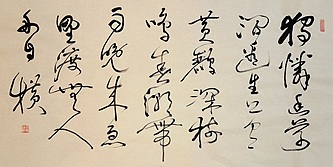 獨憐幽草
澗邊生上有
黃鸝深樹
鳴春潮帶
雨晚來急
野渡無人
舟自橫